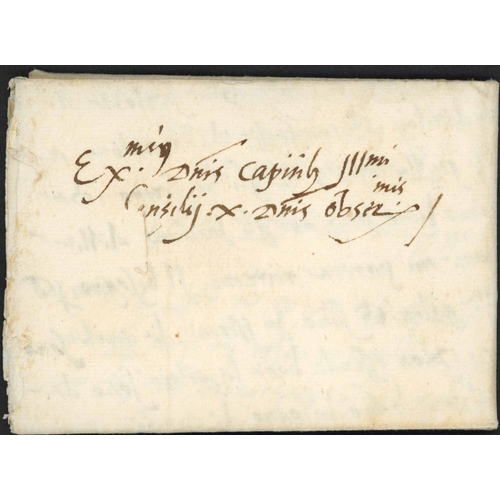 Ex.mis Dnis Capitib Illmi
Consilij .x. Dnis obser.mis